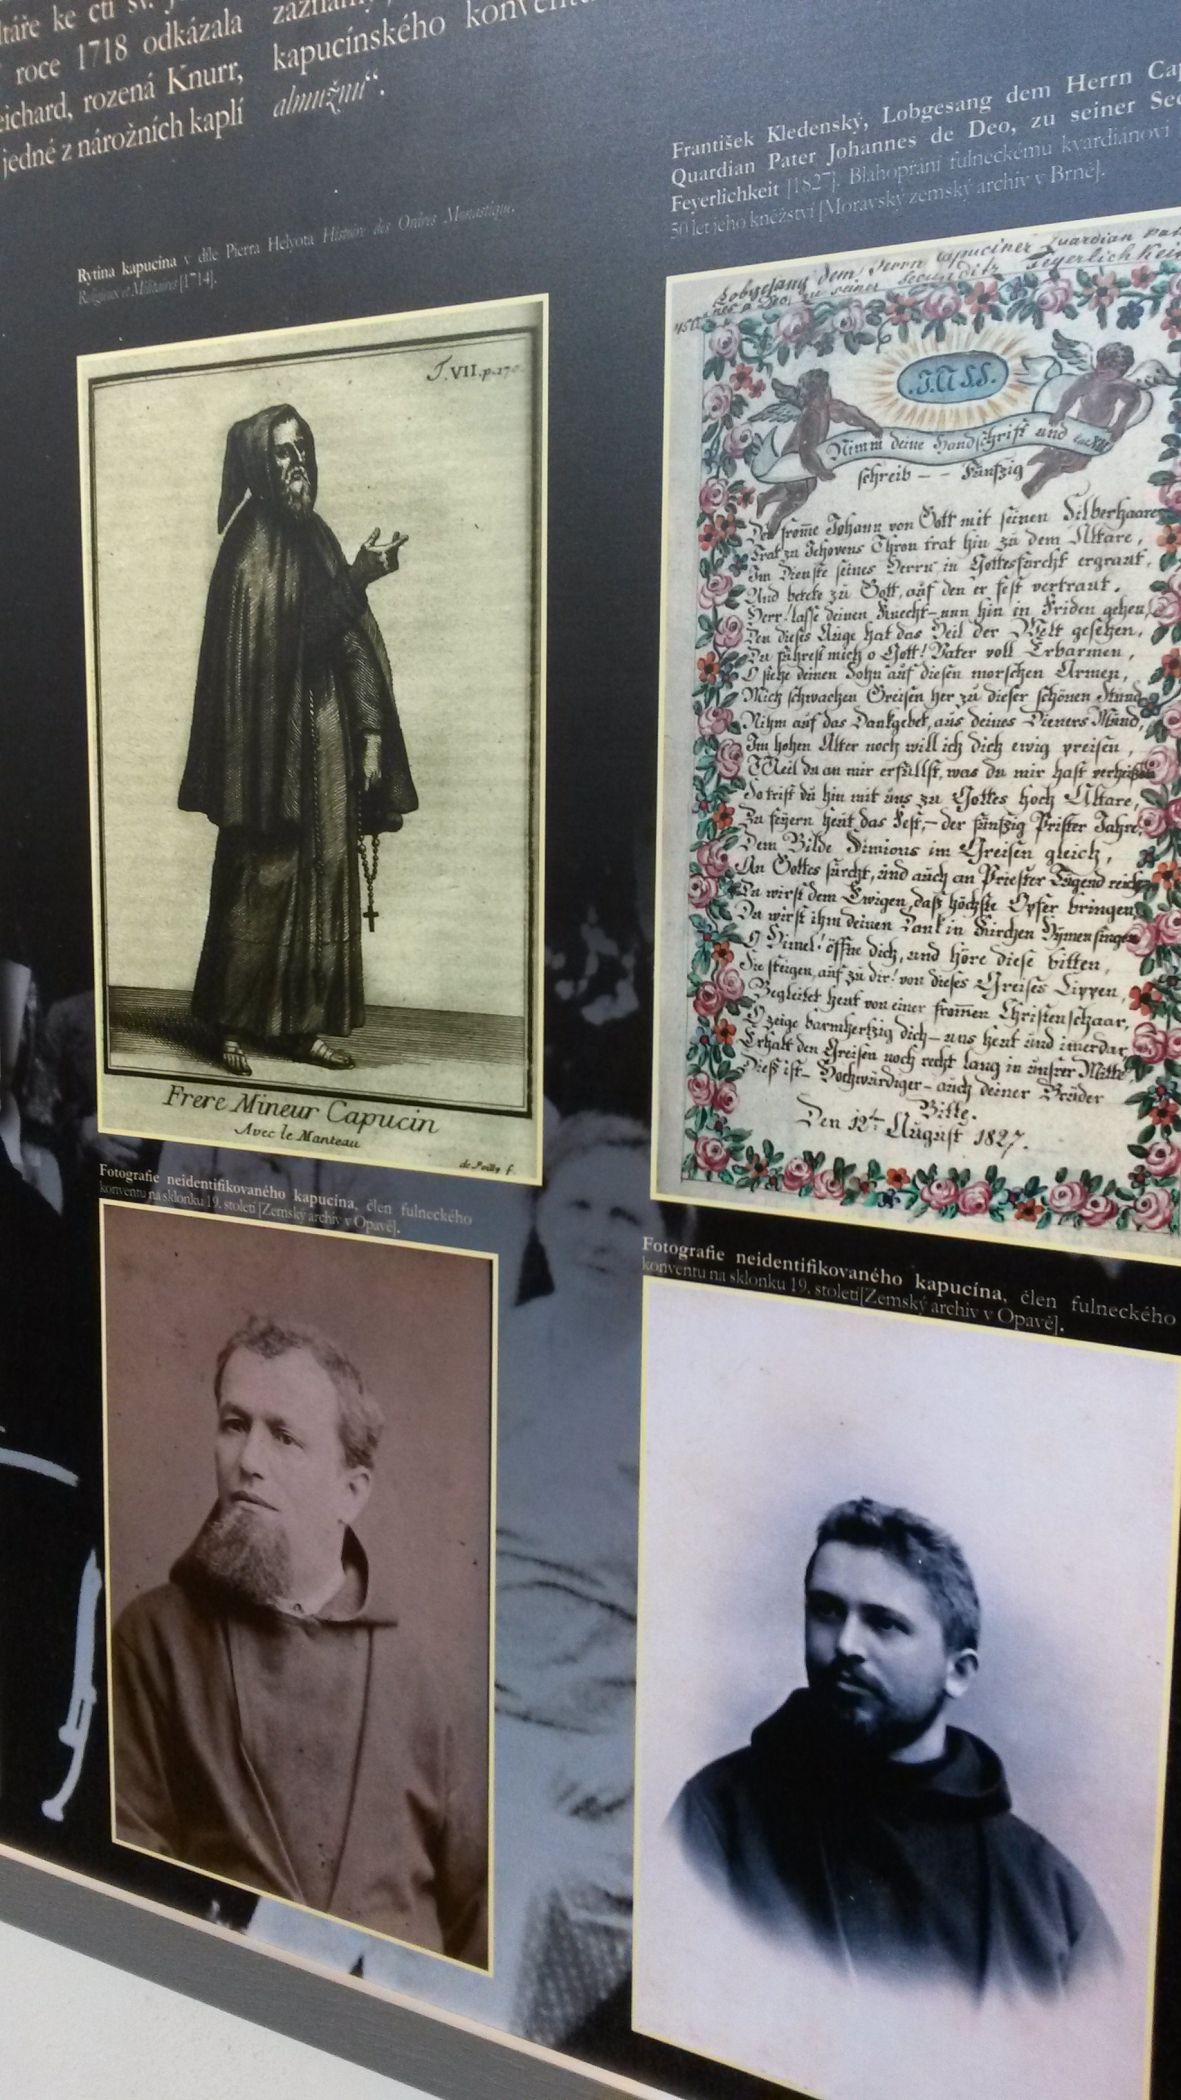 ke cti sv.
roce 1718 odkázala
rozená Knurr,
jedné z nárožních kaplí
kapucínského
almužnu“.
Rytina kapucína v díle Pierra Helyota Histoire des Ordres Monastique,
Religieux et Militaires [1714].
František Kledenský, Lobgesang dem Herrn
Quardian Pater Johannes de Deo, zu seiner
Feyerlichkeit [1827]. Blahopřání fulneckému kvardiánovi
50 let jeho kněžství [Moravský zemský archiv v Brně].
T.VII.p.170
Frere Mineur Capucin
Avec le Manteau
de Poilly f.
Lobgesang dem Herrn Capuciner Quardian
zu seiner Secunditz Feyerlichkeit
Nimm deine Handschrift und
schreib – – Fünfzig
Der frome Johann von Gott mit seinen Silberhaare
Trat zu Jehovens Thron trat hin zu dem Altare,
Im Dienste seines Herrn in Gottesfurcht ergraut,
Und betete zu Gott, auf den er fest vertraut.
Herr! lasse deinen Knecht – nun hin in Friden gehen,
Den dieses Auge hat das Heil der Welt gesehen,
Du führest mich o Gott! Vater voll Erbarmen,
O siehe deinen Sohn auf diesen morschen Armen,
Mich schwachen Greisen her zu dieser schönen Stund
Nihm auf das Dankgebet, aus deines Dieners Mund,
Im hohen Alter noch will ich dich ewig preisen,
Weil du an mir erfüllst, was du mir hast verheißen
So trist du hin mit uns zu Gottes hoch Altare,
Zu feyern heut das Fest, – der fünfzig Prister Jahre,
Dem Bilde Simions im Greisen gleich,
An Gottes furcht, und auch an Priester Tugend reich
Du wirst dem Ewigen, daß höchste Opfer bringen
Du wirst ihm deinen Dank in Kirchen Hymen singen
O Himel! öffne dich, und höre diese bitten,
Sie steigen auf zu dir! von dieses Greises Lippen,
Begleitet heut von einer fromen Christenschaar,
O zeige barmhertzig dich – uns heut und imerdar
Erhalt den Greisen noch recht lang in unsrer Mitte
Dieß ist – Hochwürdiger – auch deiner Brüder
Bitte.
Den 12t August 1827.
Fotografie neidentifikovaného kapucína, člen fulneckého
konventu na sklonku 19. století [Zemský archiv v Opavě].
Fotografie neidentifikovaného kapucína, člen fulneckého
konventu na sklonku 19. století [Zemský archiv v Opavě].